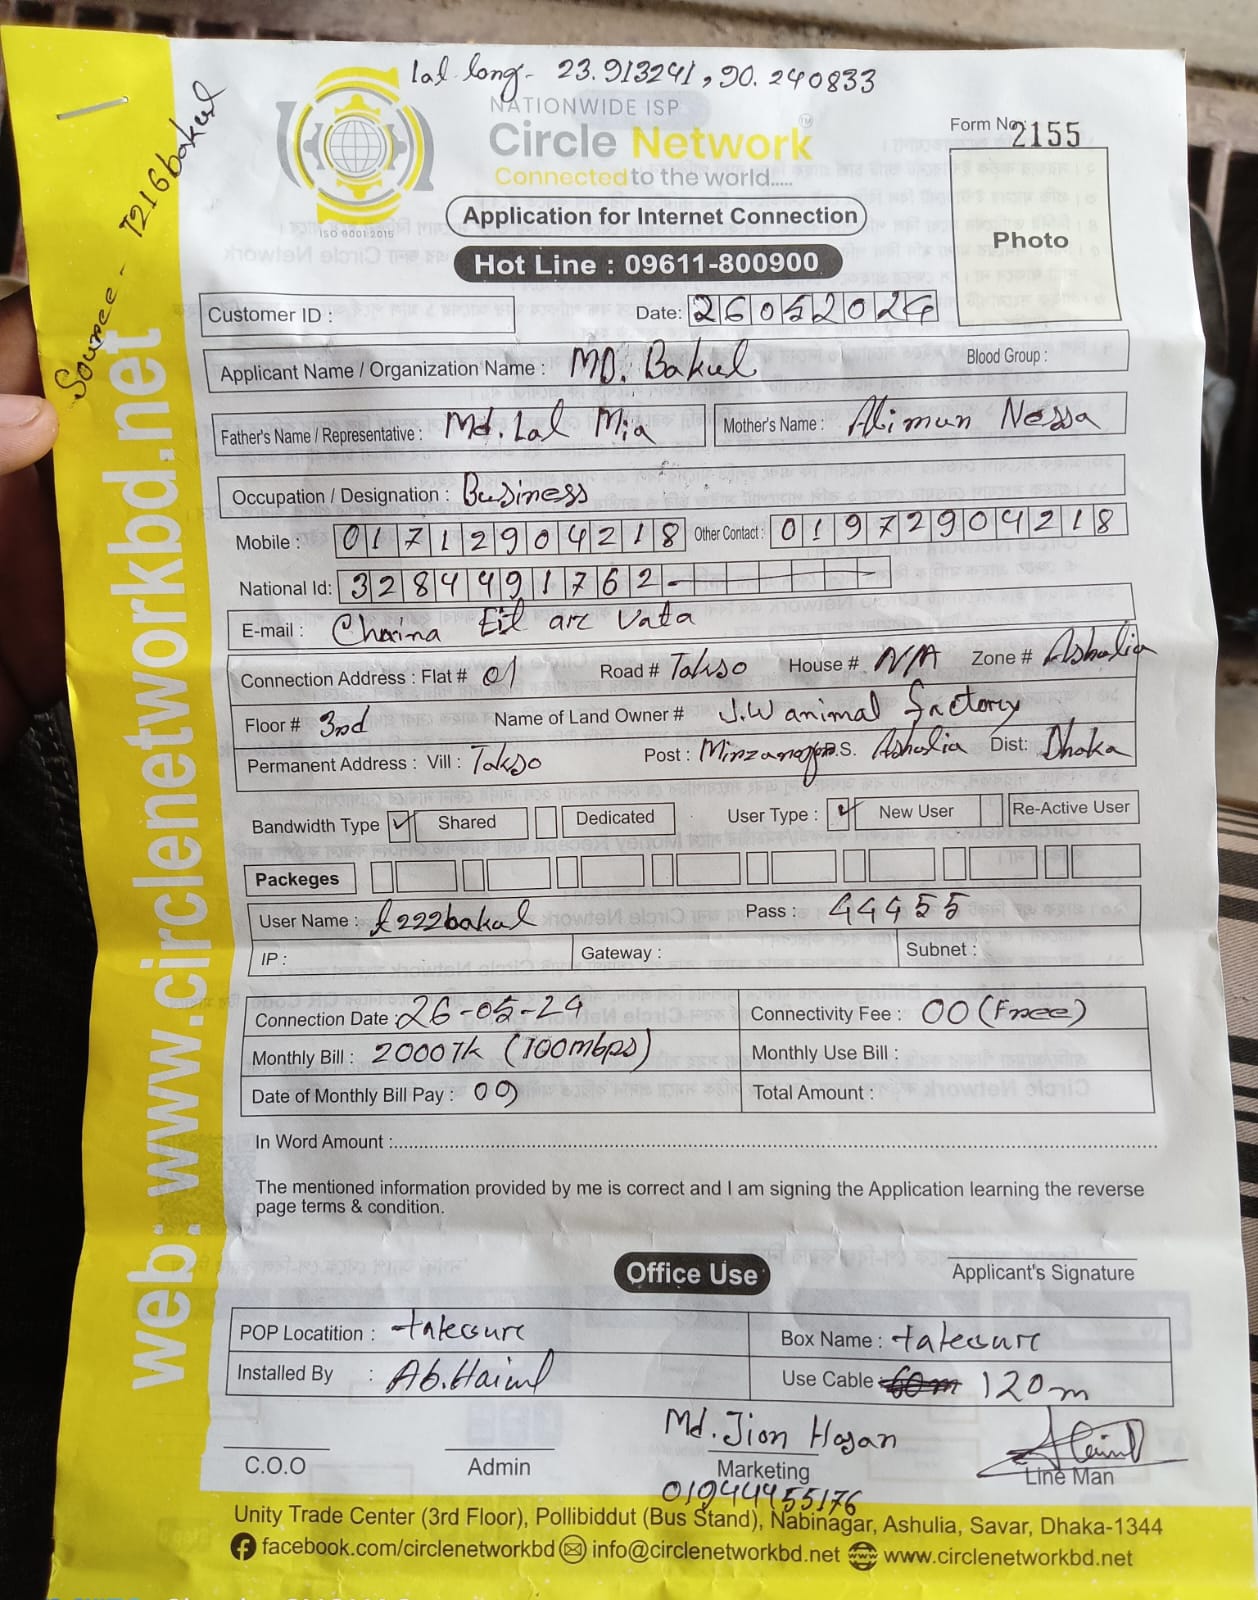 lal long- 23.913241, 90.240833
NATIONWIDE ISP
Circle Network™
Connected to the world.....
ISO 9001:2015
Form No: 2155
Photo
Application for Internet Connection
Hot Line : 09611-800900
Source - T216bakul
web: www.circlenetworkbd.net
Customer ID :
Date: 26052024
Applicant Name / Organization Name : MD. Bakul Blood Group :
Father's Name / Representative : Md. Lal Mia Mother's Name : Alimun Nessa
Occupation / Designation : Business
Mobile : 01712904218 Other Contact : 01972904218
National Id: 3284491762-
E-mail : Chaina Eit arc vata
Connection Address : Flat # 01 Road # Takso House # N/A Zone # Ashulia
Floor # 3rd Name of Land Owner # J.W animal factory
Permanent Address : Vill : Takso Post : Mirzanagor P.S. Ashulia Dist: Dhaka
Bandwidth Type ✓ Shared Dedicated User Type : ✓ New User Re-Active User
Packeges
User Name : t222bakul Pass : 44455
IP : Gateway : Subnet :
Connection Date : 26-05-24 Connectivity Fee : 00 (Free)
Monthly Bill : 2000Tk (100mbps) Monthly Use Bill :
Date of Monthly Bill Pay : 09 Total Amount :
In Word Amount :
The mentioned information provided by me is correct and I am signing the Application learning the reverse
page terms & condition.
Applicant's Signature
Office Use
POP Locatition : takesure Box Name : takesure
Installed By : Ab.Haiul Use Cable 120m
Md. Jion Hasan
C.O.O Admin Marketing Line Man
01944455176
Unity Trade Center (3rd Floor), Pollibiddut (Bus Stand), Nabinagar, Ashulia, Savar, Dhaka-1344
facebook.com/circlenetworkbd info@circlenetworkbd.net www.circlenetworkbd.net